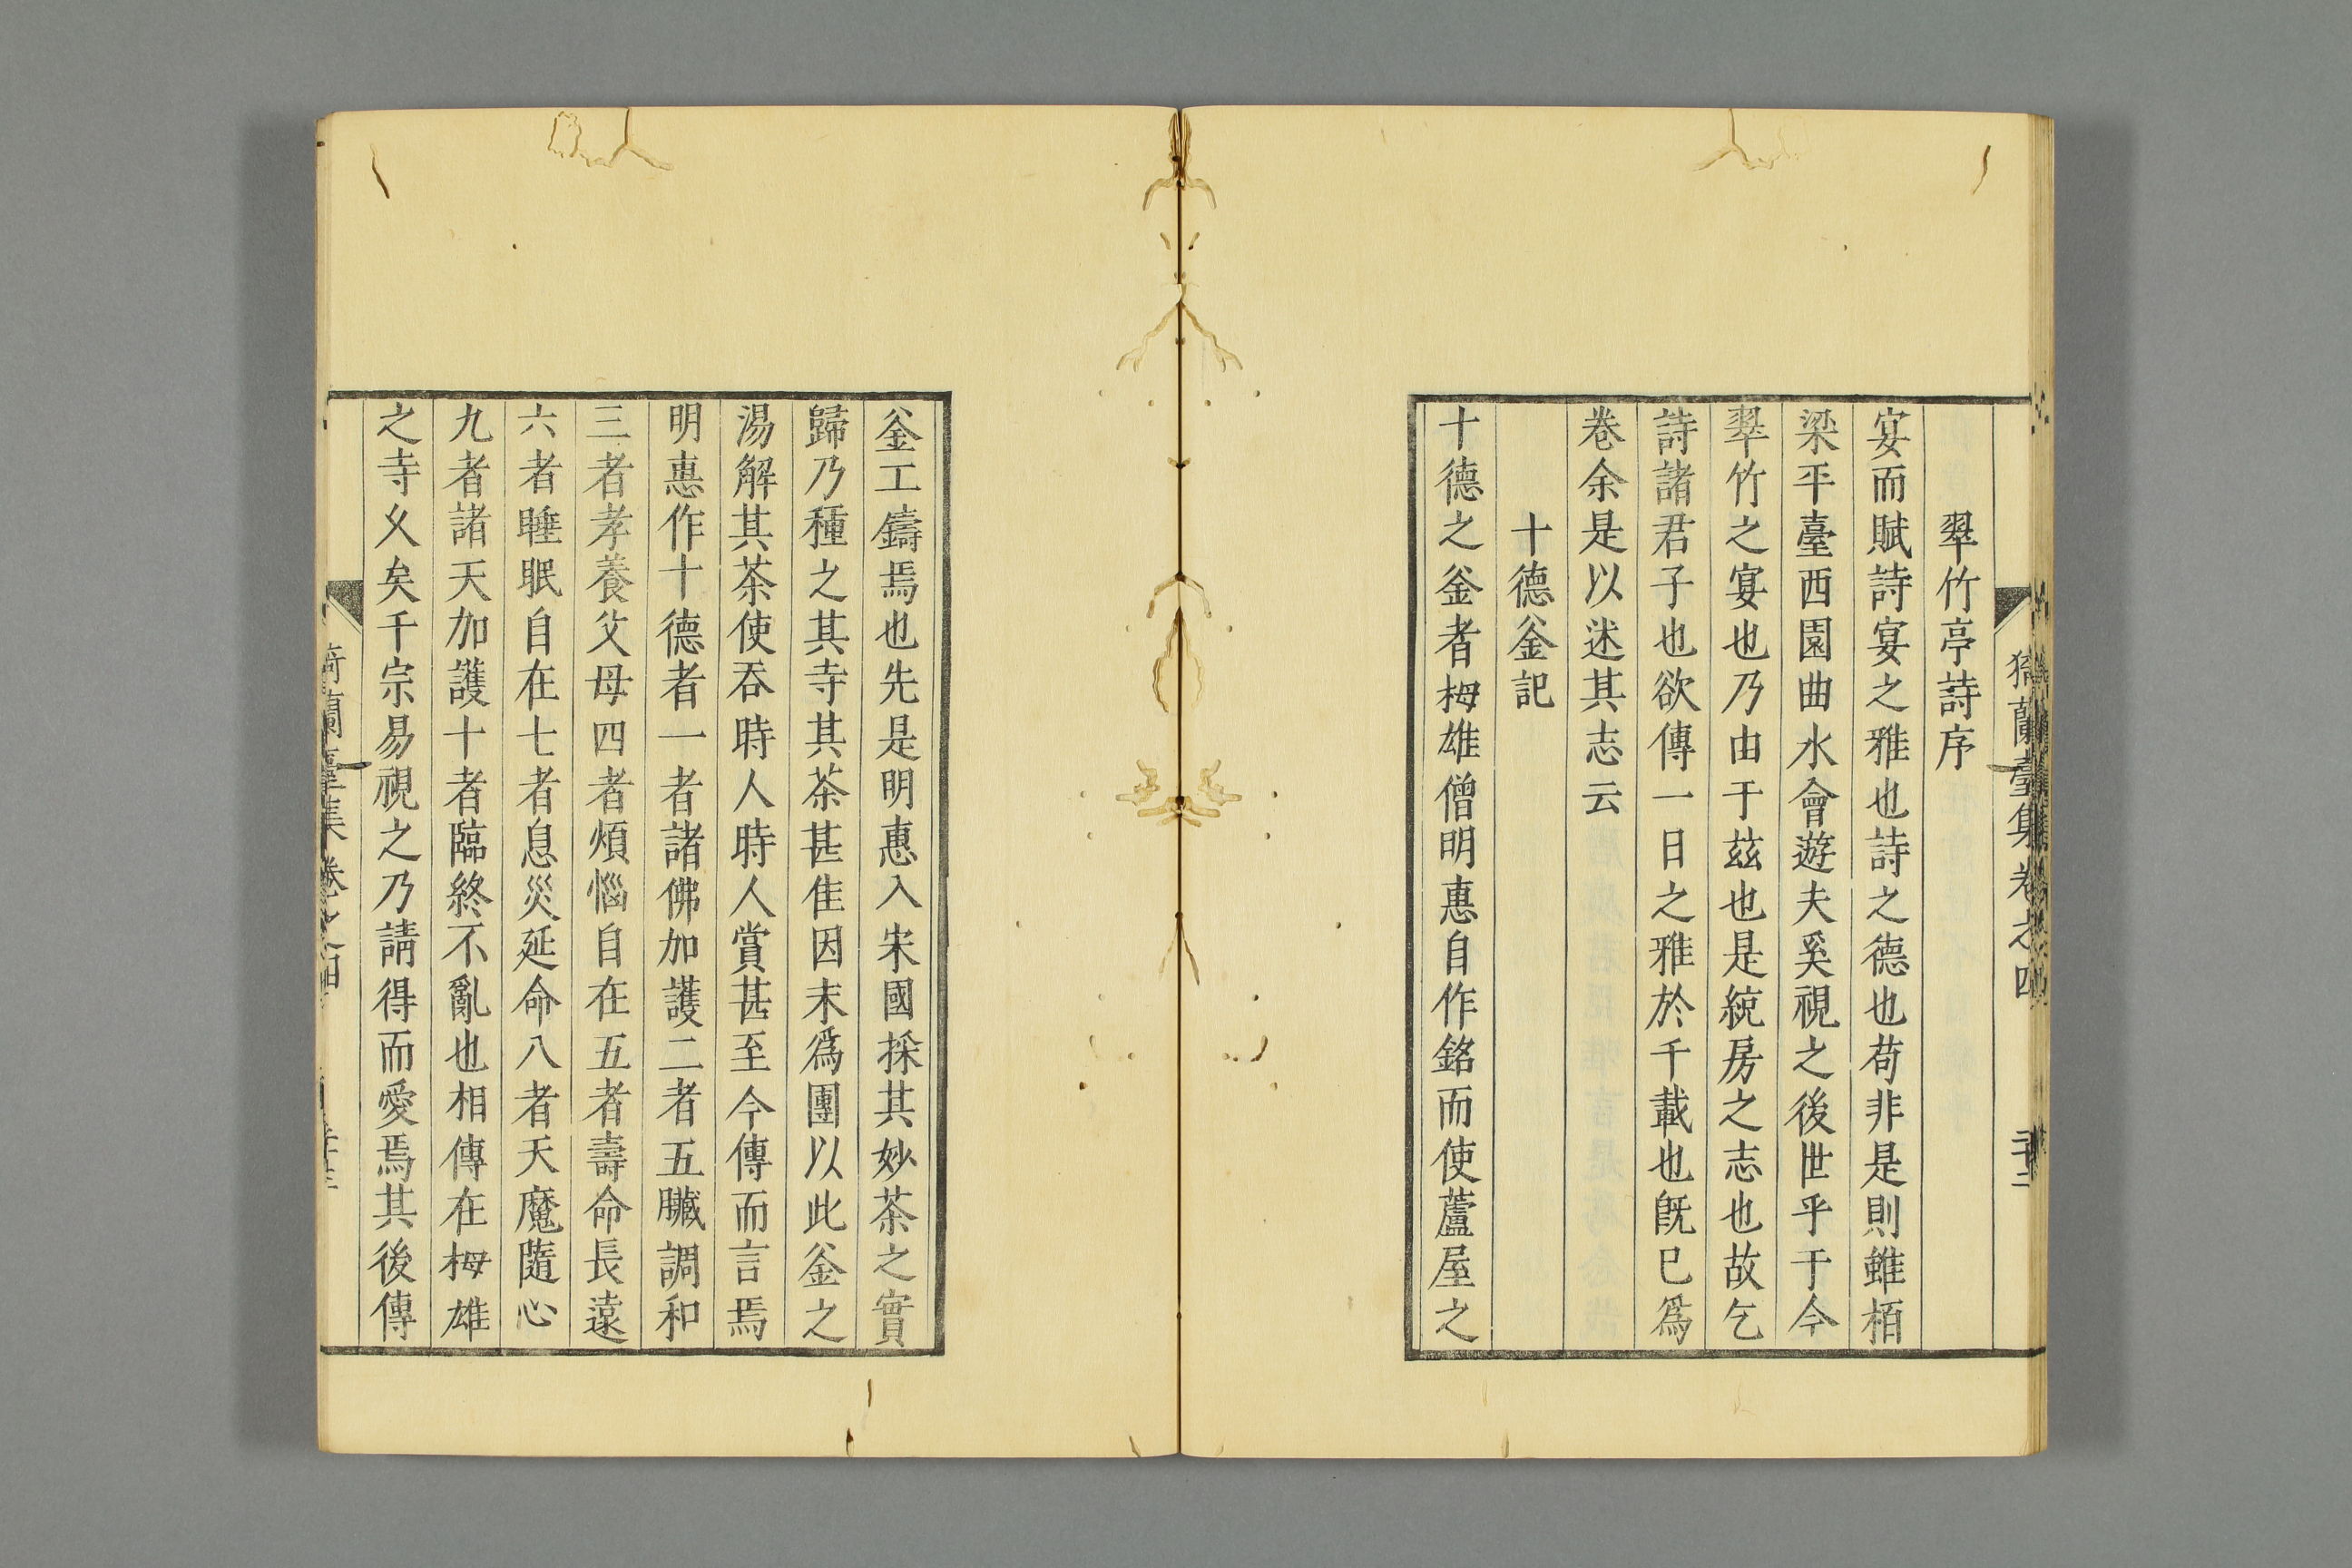 猗蘭臺集卷之四 二十二
翠竹亭詩序
宴而賦詩宴之雅也詩之德也苟非是則雖栢
梁平臺西園曲水會遊夫奚視之後世乎于今
翠竹之宴也乃由于茲也是綂房之志也故乞
詩諸君子也欲傳一日之雅於千載也旣巳爲
卷余是以述其志云
十德釡記
十德之釡者栂雄僧明惠自作銘而使蘆屋之
釡工鑄焉也先是明惠入宋國採其妙茶之實
歸乃種之其寺其茶甚佳因末爲團以此釡之
湯解其茶使吞時人時人賞甚至今傳而言焉
明惠作十德者一者諸佛加護二者五臟調和
三者孝養父母四者煩惱自在五者壽命長遠
六者睡眠自在七者息災延命八者天魔隨心
九者諸天加護十者臨終不亂也相傳在栂雄
之寺乆矣千宗易視之乃請得而愛焉其後傳
猗蘭臺集卷之四